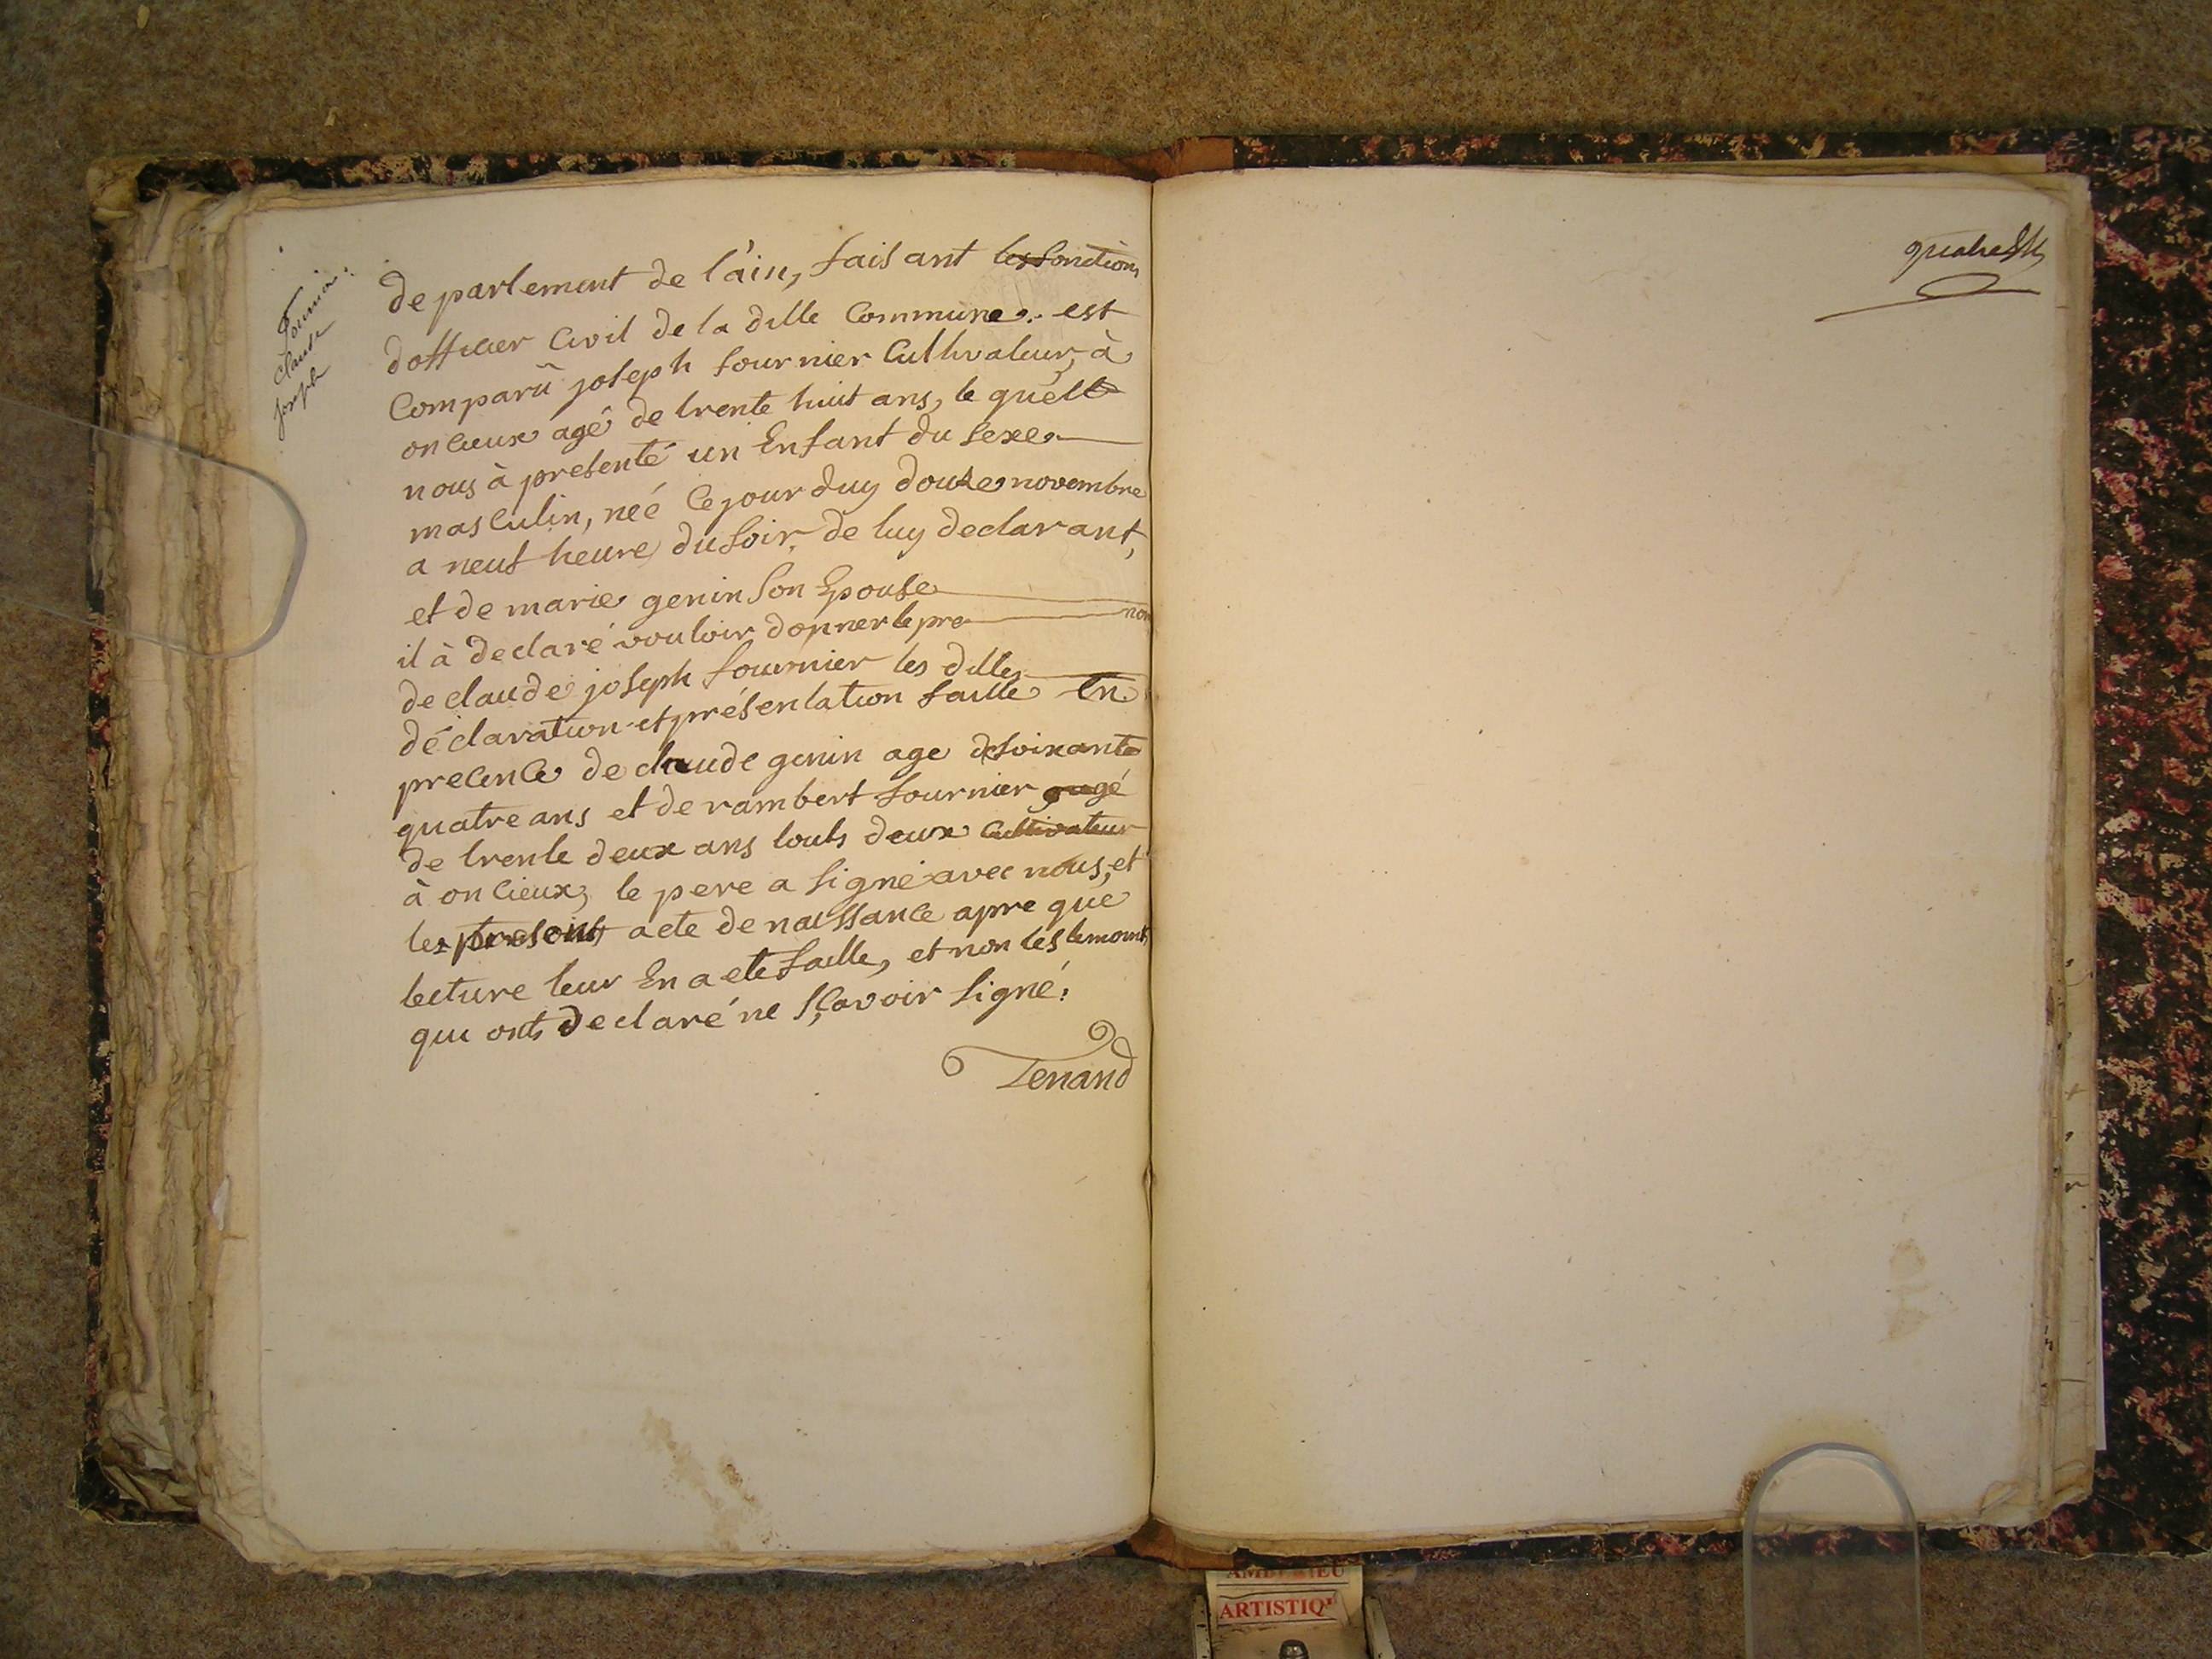 fournier
claude
joseph
departement de l'ain, faisant les fonctions
dofficier Civil de la ditte Commune. est
Comparû joseph fournier Cultivateur, à
oncieux agé de trente huit ans, le quell
nous à presenté un Enfant du sexe
masculin, neé Cejourduy douze novembre
a neuf heure du soir, de luy declarant,
et de marie genin son Epouse
il à declaré vouloir donner le pre nom
de claude joseph fournier les dittes
déclaration et présentation faitte En
precence de claude genin age desoixante
quatre ans et de rambert fournier agé
de trente deux ans touts deux Cultivateur
à oncieux, le pere a signé avec nous, et
les presents acte de naissance apre que
lecture leur En a ete faitte, et non les temoints
qui onts declaré ne sçavoir signé.
Tenand